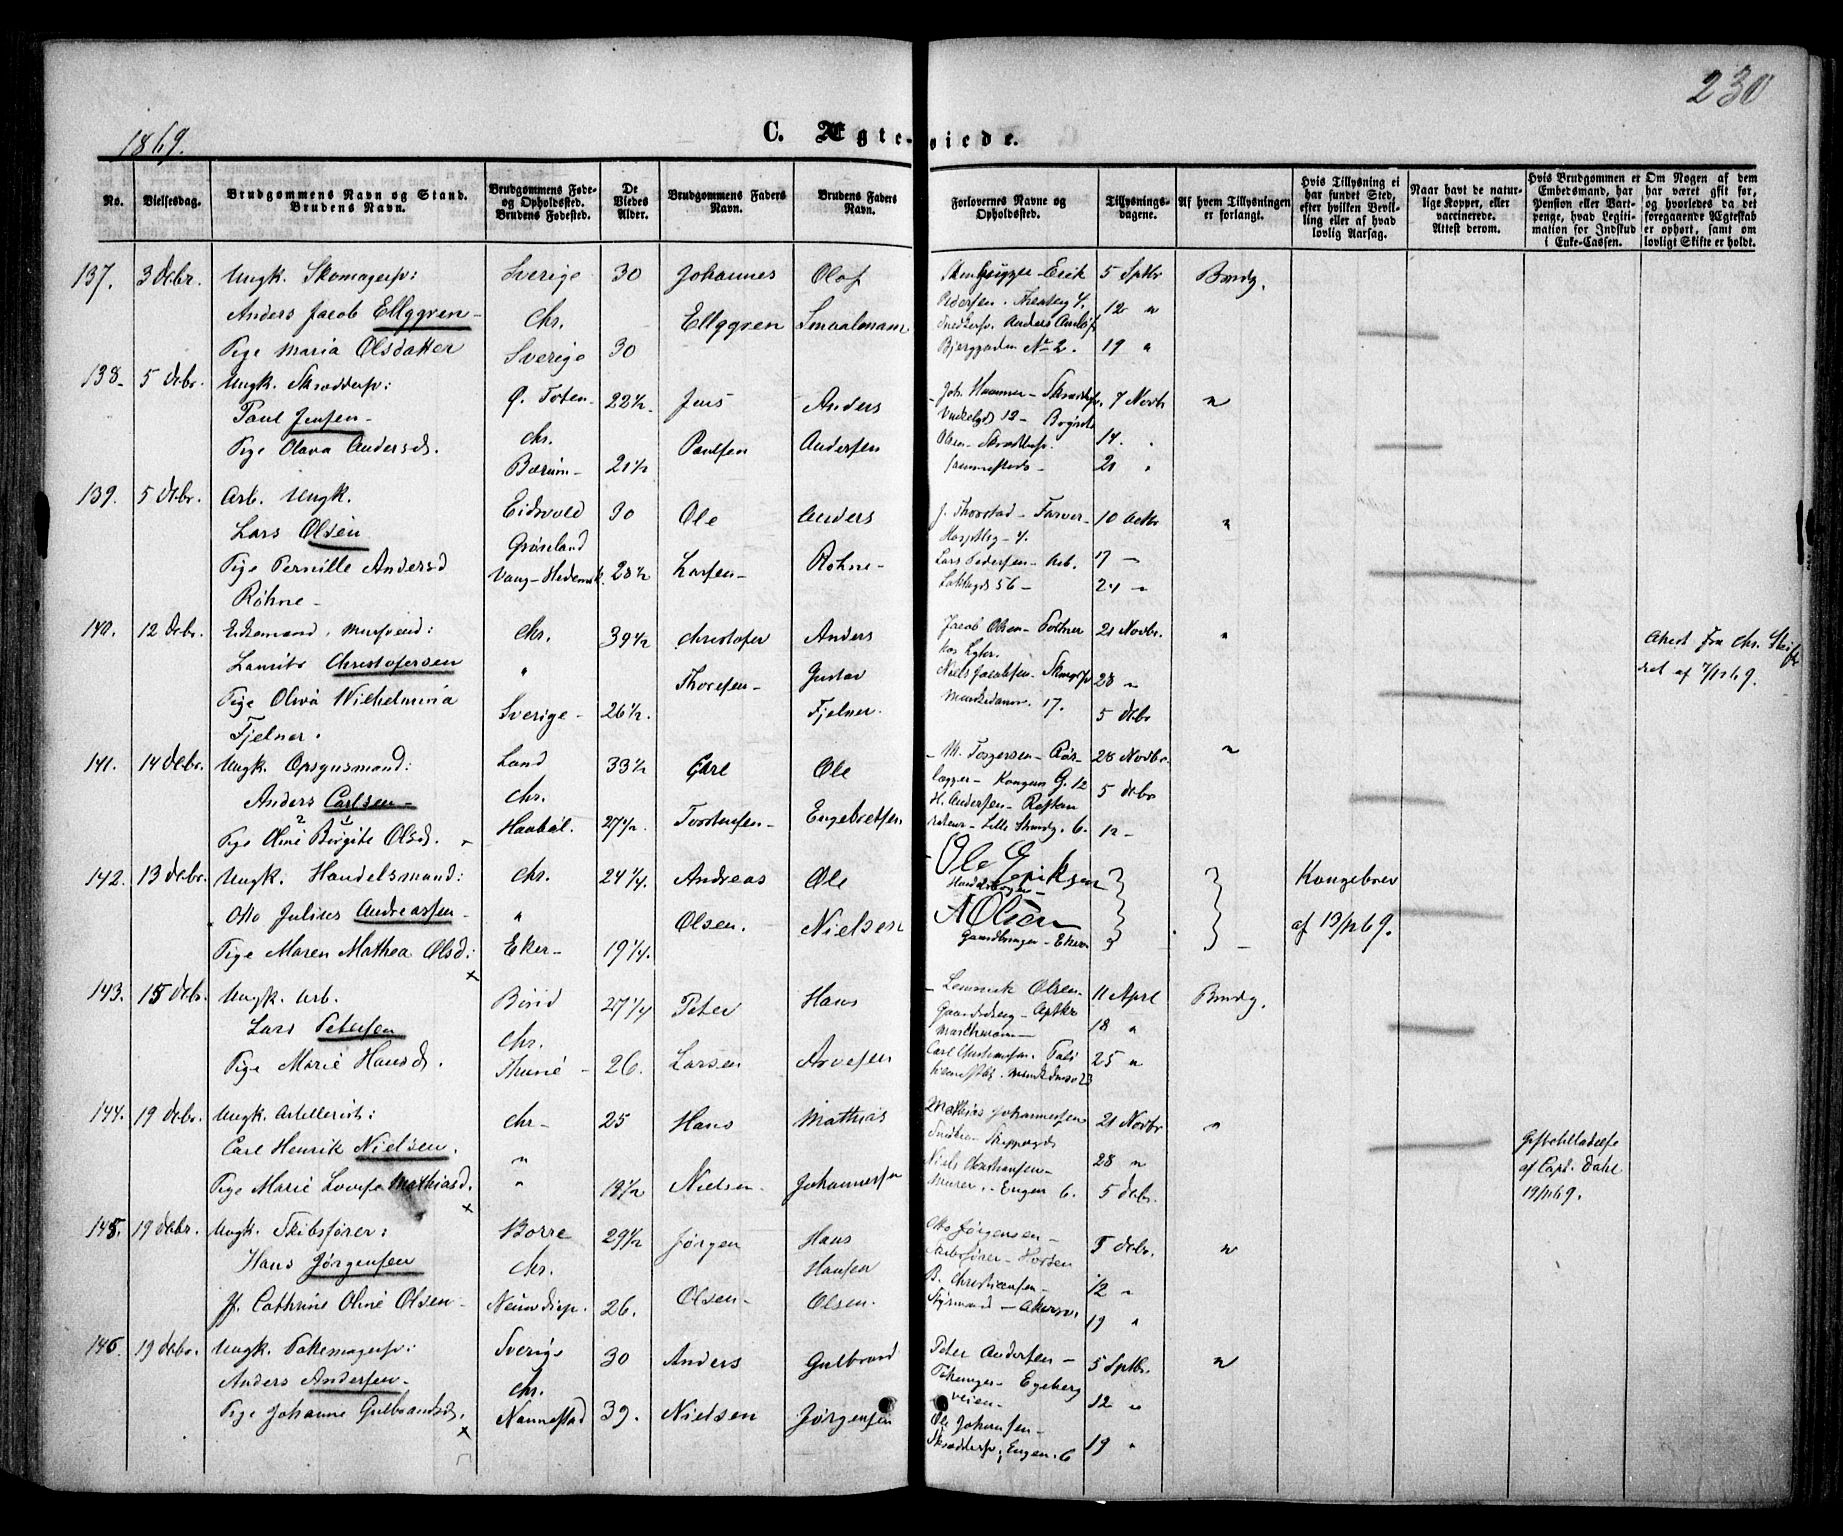 230
1869.
C. Ægte-viede.
No.
Vielsesdag.
Brudgommens Navn og Stand.
Brudens Navn.
Brudgommens Føde-
og Opholdssted.
Brudens Fødested.
De
Viedes
Alder.
Brudgommens Faders
Navn.
Brudens Faders
Navn.
Forlovernes Navne og
Opholdssted.
Tillysnings-
dagene.
Af hvem Tillysningen
er forlangt.
Hvis Tillysning ei
har fundet Sted,
efter hvilken Bevil-
ling eller af hvad
lovlig Aarsag.
Naar havt de natur-
lige Kopper, eller
vaccinerede.
Attest derom.
Hvis Brudgommen er
Embedsmand, har
Pension eller Vart-
penge, hvad Legiti-
mation for Indskud
i Enke-Cassen.
Om Nogen af dem
har været gift før,
og hvorledes da det
foregaaende Ægteskab
er ophørt, samt om
lovligt Skifte er holdt.
137. 3 Debr. Ungk. Skomagersv: Sverige 30 Johannes Olof Erik 5 Sptbr Brudg.
Anders Jacob Ellggren Chr. Ellggren Smaalmann Pedersen. 12 "
Pige Maria Olsdatter Sverige 30 Bjerggaden No 2. 19 "
138. 5 Debr. Ungk. Skræddersv: Ø. Toten 22½. Jens Anders Joh. Hammer 7 Novbr "
Paul Jensen Chr. Paulsen Andersen 14. "
Pige Olava Andersd. Bærum 21½ Olsen Skræddersv. 21 "
139. 5 Debr. Arb. Ungk. Eidsvold 30 Ole Anders J. Thorstad Farver 10 Octbr "
Lars Olsen Grønland Larsen Røhne 17 "
Pige Pernille Andersd Vang Hedemk. 28½ Lars Pedersen Arb. 24 "
Røhne Lakkegd 56
140. 12 Debr. Enkemand, Mursvend: Chr. 39½ Christofer Anders Jacob Olsen 21 Novbr. " Attest fra Chr. Skif
Lauritz Christofersen " Thoresen Gustav Niels Jacobsen 28 " ret af 7/12 69.
Pige Oliva Wilhelmina Sverige 26½. Fjelner. Munkedamsv. 17. 5 Debr
Fjelner.
141. 14 Debr. Ungk. Opsynsmand: Land 33½ Carl Ole M. Torgersen 28 Novbr. "
Anders Carlsen Chr. Torstensen Engebretsen Kongens G. 12 5 Debr
Pige Oline Birgite Olsd. 27½. H. Andersen Lille Strandg. 6. 12
142. 13 Debr. Ungk. Handelsmand: Chr. 24¼. Andreas Ole Ole Eriksen Kongebrev
Otto Julius Andreassen " Olsen. Nielsen A Olsen af 13/12 69.
Pige Maren Mathea Olsd: Eker 19¼. Gaardbruger Eker
143. 15 Debr. Ungk. Arb. Birid 27¼ Peter Hans Olsen 11 April Brudg.
Lars Petersen Chr. Larsen Arvesen 18 "
Pige Marie Hansd. 26. Carl Christiansen. 25 "
144. 19 Debr. Ungk. Artillerist: Chr 25 Hans Matthias Mathias Johannessen 21 Novbr "
Carl Henrik Nielsen. " Nielsen. Johannessen Niels Christiansen 28 " af Capt. Dahl
Pige Marie Lovise Mathiasd. " 18½ Murer. Engen 6. 5 Debr. 19/12 69.
145. 19 Debr. Ungk. Skibsfører: Borre 29½ Jørgen Hans Otto Jørgensen 5 Debr. "
Hans Jørgensen Chr. Olsen Hansen Skibsfører Horten 12 "
Jf. Cathrine Oline Olsen 26. Olsen. B. Christiansen Styrmand 19 "
146. 19 Debr. Ungk. Sverige 30 Anders Gulbrand Peter Andersen 5 Sptbr. "
Anders Andersen Chr. Nielsen Jørgensen Egeberg 12 "
Pige Johanne Gulbrandsd. Nannestad 39. veien. 19 "
Ole Johansen
Skræddersv; Engen. 6